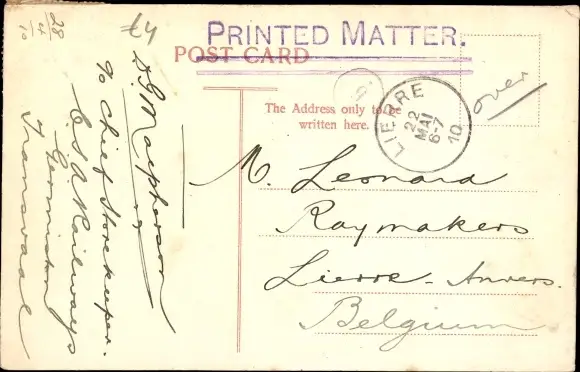 PRINTED MATTER.
POST CARD
The Address only to be
written here.
LIERRE
22
MAI
6-7
10
over
M. Leonard
Raymakers
Lierre - Anvers.
Belgium
28/4/10
£4
D. G. Macpherson
c/o Chief Storekeeper.
C. S. A. Railways
Germiston
Transvaal